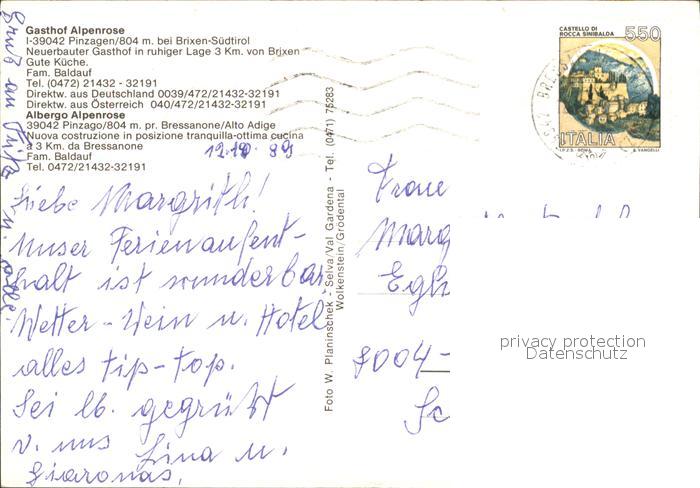 Gasthof Alpenrose
I-39042 Pinzagen/804 m. bei Brixen-Südtirol
Neuerbauter Gasthof in ruhiger Lage 3 Km. von Brixen
Gute Küche.
Fam. Baldauf
Tel. (0472) 21432 - 32191
Direktw. aus Deutschland 0039/472/21432-32191
Direktw. aus Österreich 040/472/21432-32191
Albergo Alpenrose
39042 Pinzago/804 m. pr. Bressanone/Alto Adige
Nuova costruzione in posizione tranquilla-ottima cucina
a 3 Km. da Bressanone
Fam. Baldauf
Tel. 0472/21432-32191
12.10.89
Liebe Margrith!
Unser Ferienaufent-
halt ist wunderbar,
Wetter - Wein u. Hotel
alles tip-top.
Sei lb. gegrüsst
v. uns Lina u.
Gruß an
u. alle
Foto W. Planinschek - Selva/Val Gardena - Tel. (0471) 75283
Wolkenstein/Grödental
CASTELLO DI
ROCCA SINIBALDA
550
ITALIA
I.P.Z.S. - ROMA
E. VANGELLI
Frau
Marg
Egl
8004 -
privacy protection
Datenschutz